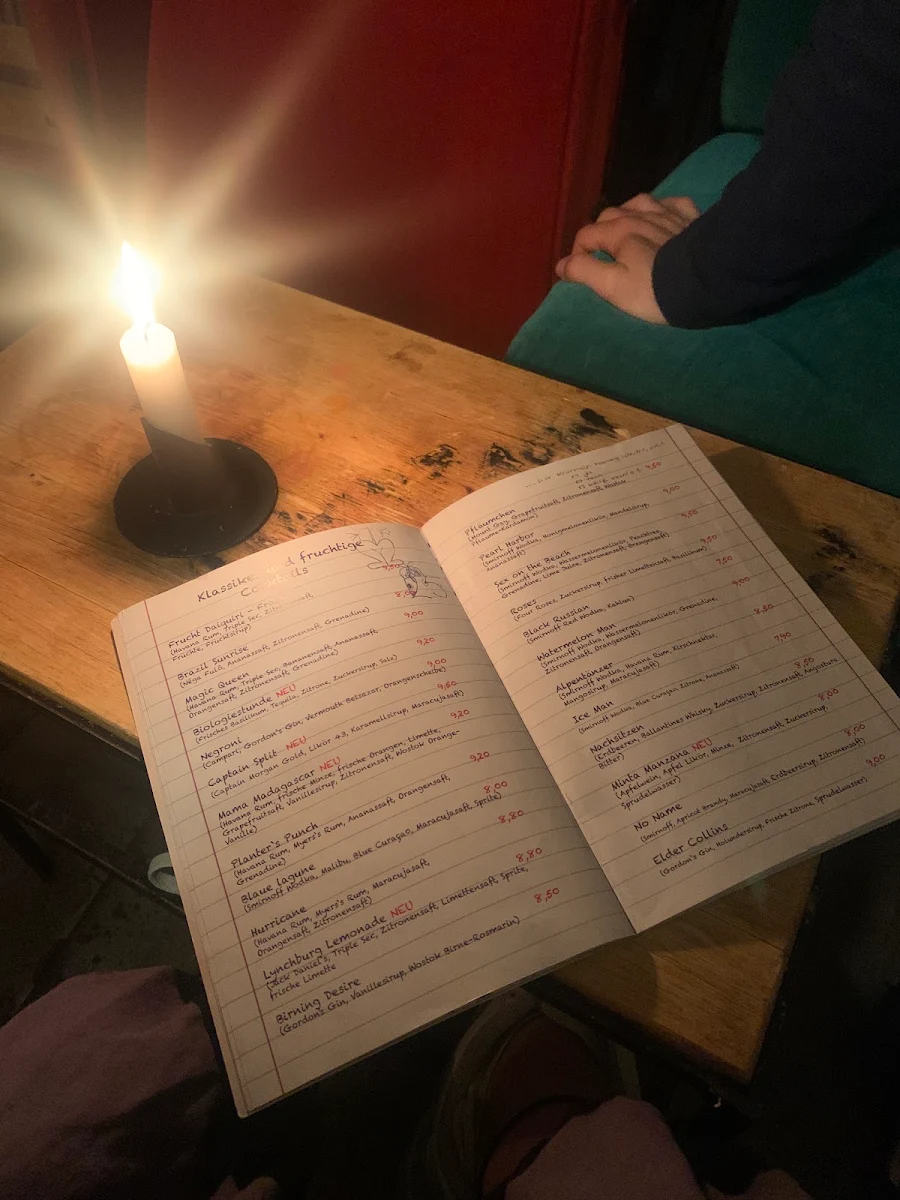 Klassiker und fruchtige
Cocktails
Frucht Daiquiri -
9,50
(Havana Rum, Triple Sec,
Früchte, Fruchtsirup)
Brazil Sunrise
8,00
(Nêga Fulô, Ananassaft, Zitronensaft, Grenadine)
Magic Queen
9,00
(Havana Rum, Triple Sec, Bananensaft, Ananassaft,
Orangensaft, Zitronensaft, Grenadine)
Biologiestunde NEU
9,20
(Frisches Basilikum, Tequila, Zitrone, Zuckersirup, Salz)
Negroni
9,00
(Campari, Gordon's Gin, Vermouth Belsazar, Orangenscheibe)
Captain Split NEU
9,60
(Captain Morgan Gold, Likör 43, Karamellsirup, Maracujasaft)
Mama Madagascar NEU
9,20
(Havana Rum, frische Minze, frische Orangen, Limette,
Grapefruitsaft, Vanillesirup, Zitronensaft, Wostok Orange-
Vanille)
Planter's Punch
9,20
(Havana Rum, Myers's Rum, Ananassaft, Orangensaft,
Grenadine)
Blaue Lagune
8,00
(Smirnoff Wodka, Malibu, Blue Curaçao, Maracujasaft, Sprite)
Hurricane
8,80
(Havana Rum, Myers's Rum, Maracujasaft,
Orangensaft, Zitronensaft)
Lynchburg Lemonade NEU
8,80
(Jack Daniel's, Triple Sec, Zitronensaft, Limettensaft, Sprite,
frische Limette
Birning Desire
8,50
(Gordon's Gin, Vanillesirup, Wostok Birne-Rosmarin)
Pfläumchen
9,50
(Mount Gay, Grapefruitsaft, Zitronensaft, Wostok
Pflaume-Kardamom)
Pearl Harbor
9,00
(Smirnoff Wodka, Honigmelonenlikör, Mandelsirup,
Ananassaft)
Sex on the Beach
9,50
(Smirnoff Wodka, Wassermelonenlikör, Peachtree,
Grenadine, Lime Juice, Zitronensaft, Orangensaft)
Roses
9,50
(Four Roses, Zuckersirup, frischer Limettensaft, Basilikum)
Black Russian
7,50
(Smirnoff Red Wodka, Kahlua)
Watermelon Man
9,00
(Smirnoff Wodka, Wassermelonenlikör, Grenadine,
Zitronensaft, Orangensaft)
Alpentönzer
8,50
(Smirnoff Wodka, Havana Rum, Kirschnektar,
Mangosirup, Maracujasaft)
Ice Man
7,90
(Smirnoff Wodka, Blue Curaçao, Zitrone, Ananassaft)
Nachsitzen
8,50
(Erdbeeren, Ballantines Whisky, Zuckersirup, Zitronensaft, Angostura
Bitter)
Minta Manzana NEU
8,00
(Apfelwein, Apfel Likör, Minze, Zitronensaft, Zuckersirup,
Sprudelwasser)
No Name
8,00
(Smirnoff, Apricot Brandy, Maracujasaft, Erdbeersirup, Zitronensaft)
Elder Collins
9,00
(Gordon's Gin, Holundersirup, frische Zitrone, Sprudelwasser)